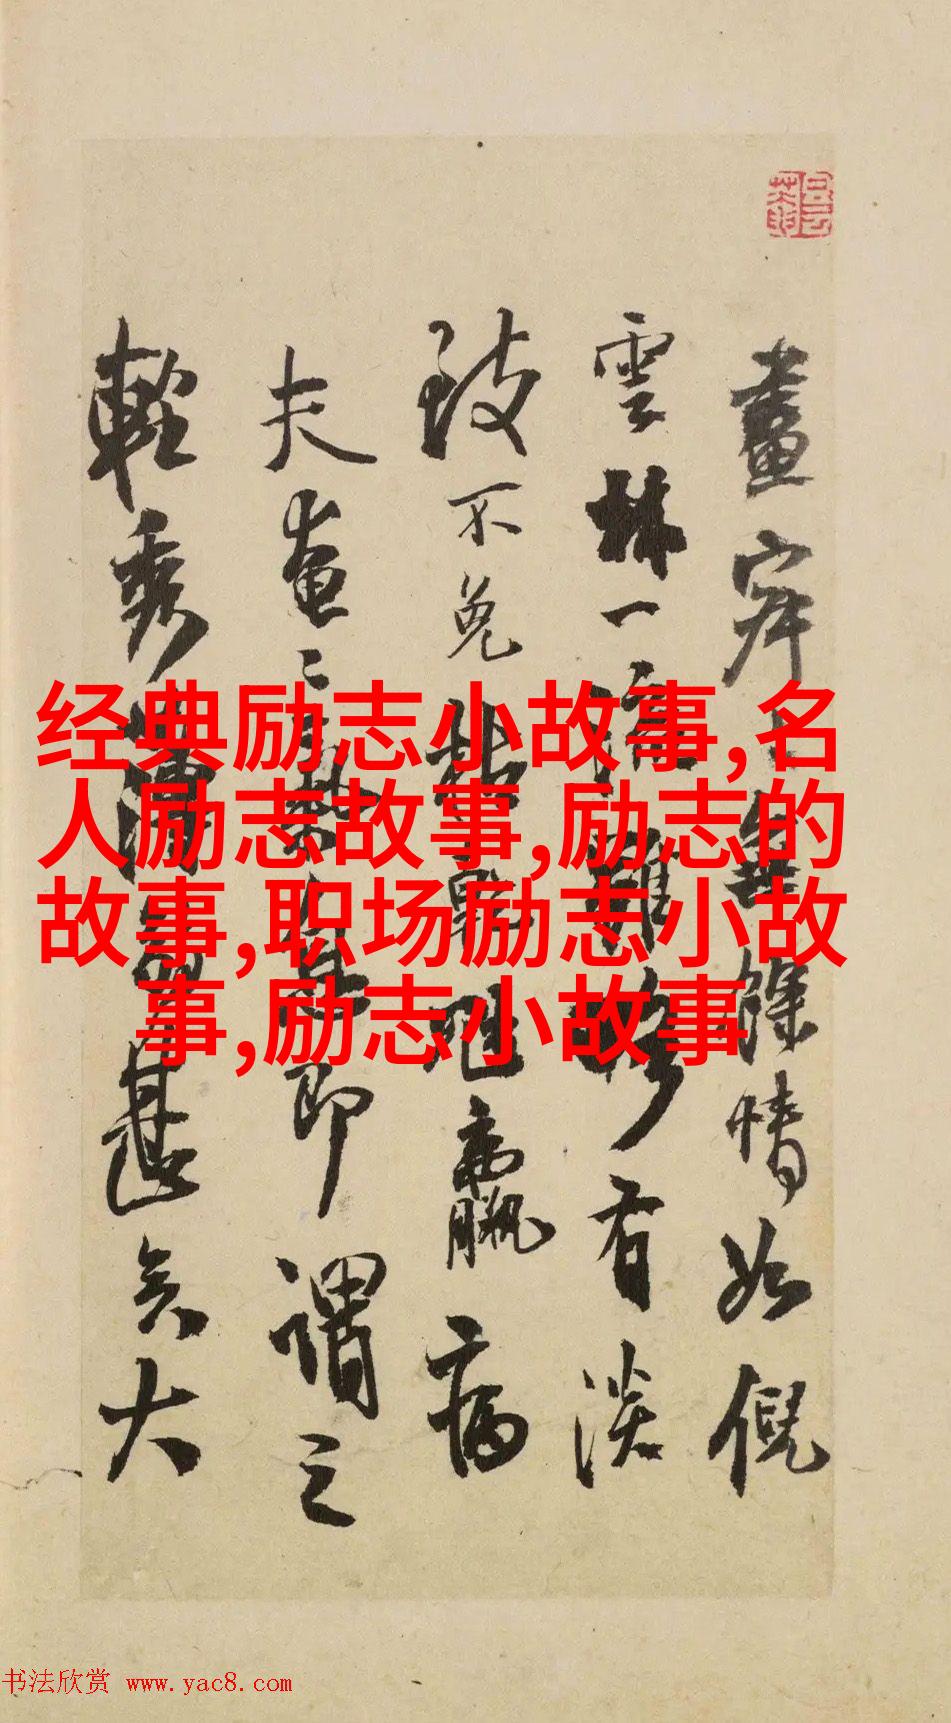 畫無餘情如倪
雲林一流雖有淡
致不免枯乾尪羸病
夫奄即謂之
輕秀薄弱甚矣大
经典励志小故事,名
人励志故事,励志的
故事,职场励志小故
事,励志小故事
书法欣赏 www.yac8.com